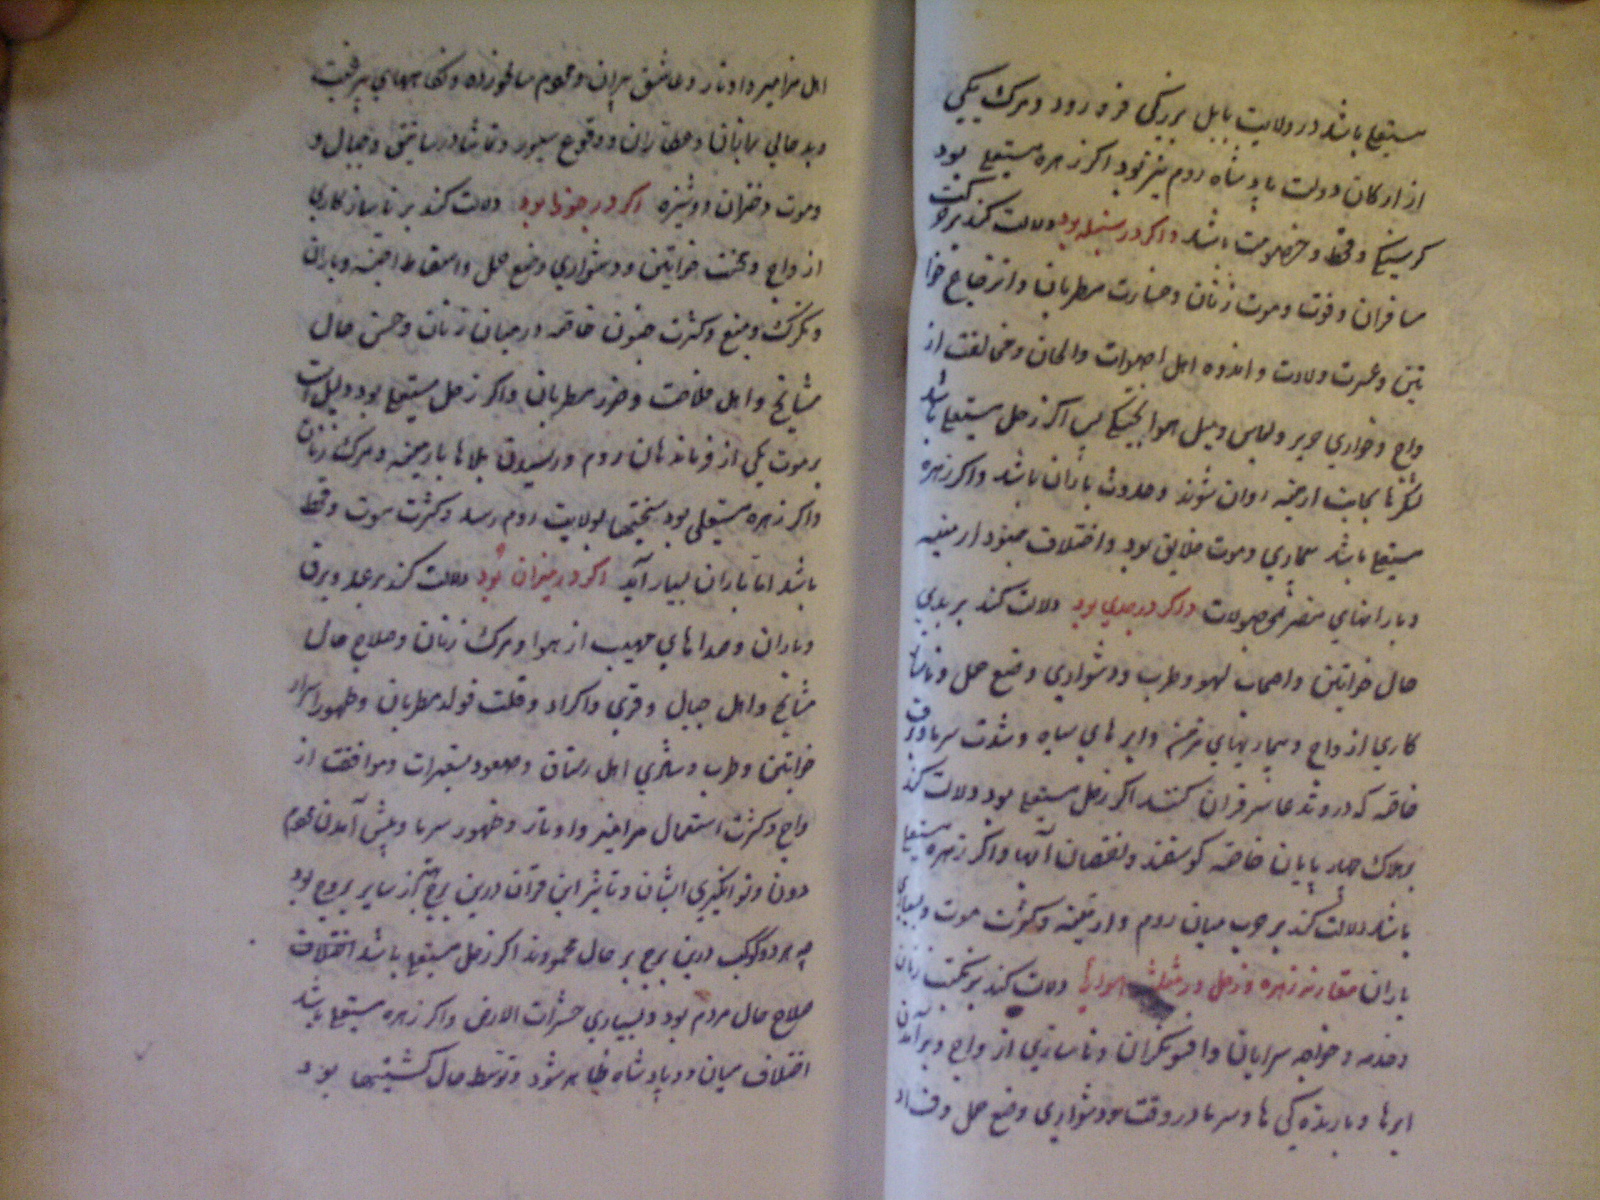 مستعلی باشد در ولایت بابل بزرگی فرو رود و مرک یکی
از ارکان دولت پادشاه روم نیز بود اکر زهره مستعلی بود
کرسنکی و قحط و خصومت باشد و اکر در سنبله بود دلالت کند بر حرکت
مسافران و فوت و موت زنان و خسارت مطربان و انزعاج خوا
تین و عسرت ولادت و اندوه اهل اصوات و الحان و مخالفت از
واج و خواری حریر و لباس و میل هوا بخشکی پس اکر زحل مستعلی باشد
لشکرها بجانب ارمنیه روان شوند و حدوث باران باشد و اکر زهره
مستعلی باشد بیماری و موت خلایق بود و اختلاف جنود ارمنیه
و بارانهای مضر محصولات و اکر در جدی بود دلالت کند بر بدی
حال خواتین و اصحاب لهو و طرب و دشواری وضع حمل و ناساز
کاری ازواج و بیماریهای مزمنه و ابرهای سیاه و شدت سرما و برف
خاصه که در وتد عاشر قران کنند اکر زحل مستعلی بود دلالت کند
بر هلاک چهارپایان خاصه کوسفند و نقصان آبها و اکر زهره مستعلی
باشد دلالت کند بر حرب میان روم و ارمنیه و کثرت موت و بسیاری
باران مقارنه زهره و زحل در مثلثه هوائی دلالت کند بر نکبت زنان
و خدمه و خواجه سرایان و افسونکران و ناسازی ازواج و برآمدن
ابرها و بارندکی ها و سرما در وقت و دشواری وضع حمل و فساد
اهل مزامیر و اوتار و عاشق پسران و هموم سالخورده و نکاحهای بیرغبت
و بدحالی نباتان و عطاران و وقوع و تماشا در بساتین و جبال و
و موت دختران دوشیزه اکر در جوزا بود دلالت کند بر ناسازکاری
ازواج و نکبت خواتین و دشواری وضع حمل و اسقاط اجنه و باران
و تکرک و منع و کثرت جنون خاصه در میان زنان و حسن حال
مشایخ و اهل فلاحت و ضرر مطربان و اکر زحل مستعلی بود دلیل است
بر موت یکی از فرماندهان روم و رسیدن بلاها بارمنیه و مرک زنان
و اکر زهره مستعلی بود سختیها بولایت روم رسد و کثرت موت و قحط
باشد اما باران بسیار آید اکر در میزان بود دلالت کند بر رعد و برق
و باران و صداهای مهیب از هوا و مرک زنان و صلاح حال
مشایخ و اهل جبال و قری و اکراد و قلت فواید مطربان و ظهور اسرار
خواتین و طرب و شادی اهل رستاق و صعود و موافقت از
واج و کثرت استعمال مزامیر و اوتار و ظهور سرما و پیش آمدن قوم
دون و توانکری ایشان و تاثیر این قران درین برج بهتر از سایر بروج بود
چه هر دو کوکب درین برج بر حال محمودند اکر زحل مستعلی باشد اختلاف
صلاح حال مردم بود و بسیاری حشرات الارض و اکر زهره مستعلی باشد
اختلاف میان دو پادشاه ظاهر شود و توسط حال کشتیها بود